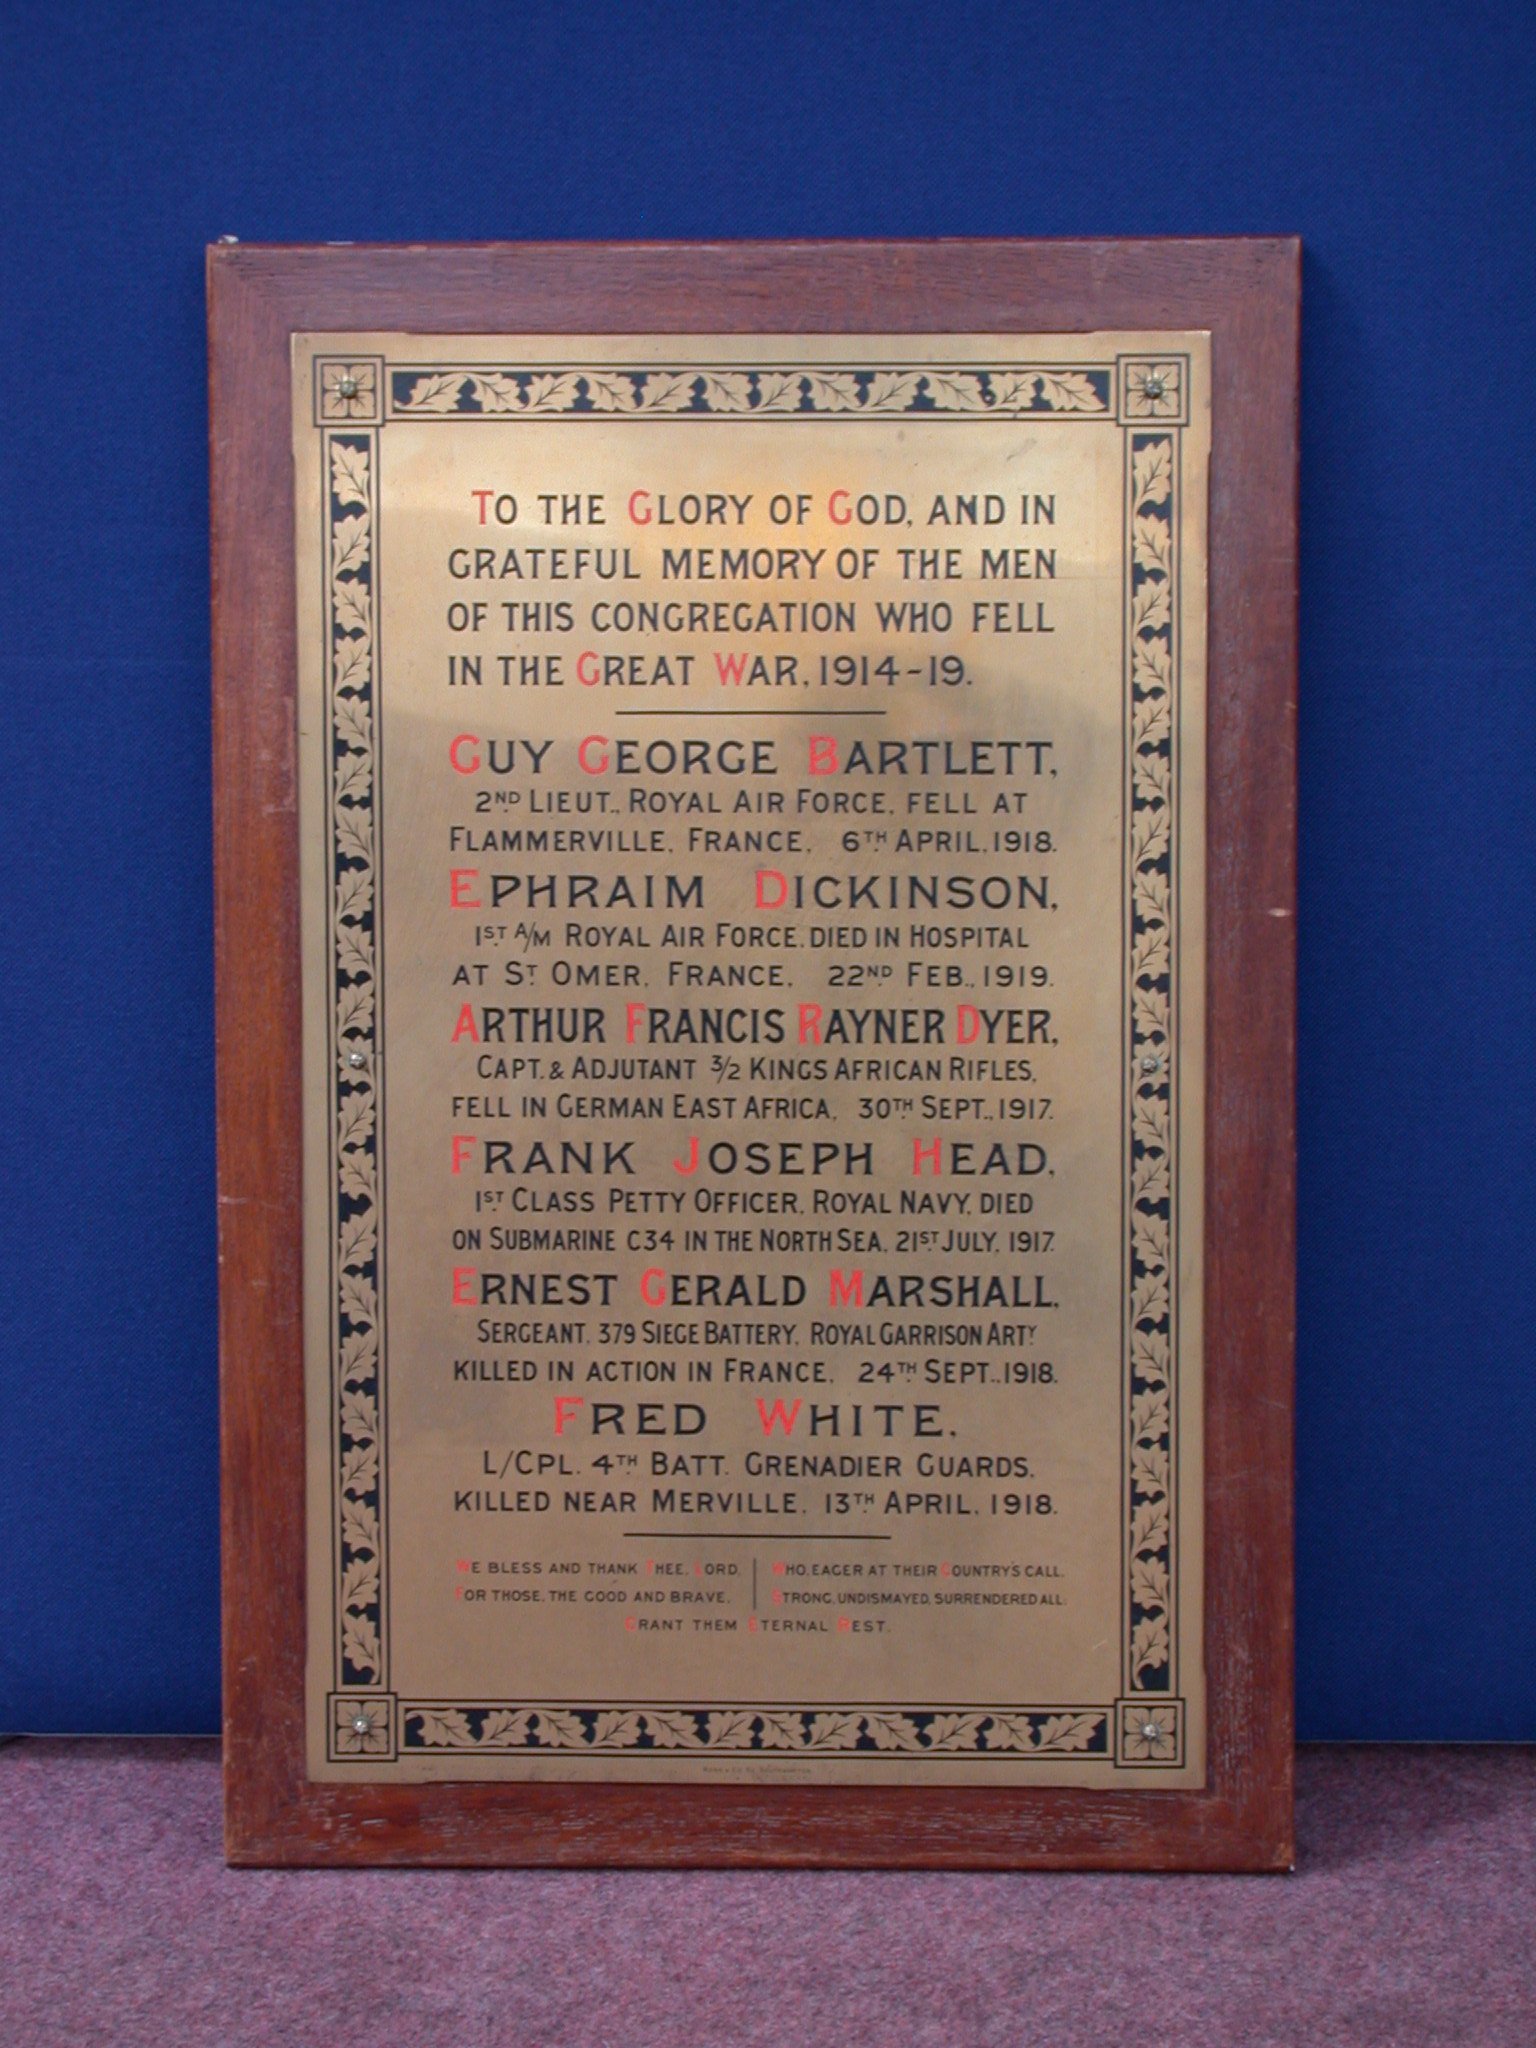 To the Glory of God, and in
grateful memory of the men
of this congregation who fell
in the Great War, 1914-19.
Guy George Bartlett,
2nd Lieut., Royal Air Force, fell at
Flammerville, France, 6th April, 1918.
Ephraim Dickinson,
1st A/M Royal Air Force, died in Hospital
at St Omer, France, 22nd Feb., 1919.
Arthur Francis Rayner Dyer,
Capt. & Adjutant 3/2 Kings African Rifles,
fell in German East Africa, 30th Sept., 1917.
Frank Joseph Head,
1st Class Petty Officer, Royal Navy, died
on Submarine C34 in the North Sea, 21st July, 1917.
Ernest Gerald Marshall,
Sergeant, 379 Siege Battery, Royal Garrison Arty
killed in action in France, 24th Sept., 1918.
Fred White,
L/Cpl. 4th Batt. Grenadier Guards,
killed near Merville, 13th April, 1918.
We bless and thank Thee, Lord,
For those, the good and brave,
Who, eager at their Country's call,
Strong, undismayed, surrendered all:
Grant them Eternal Rest.